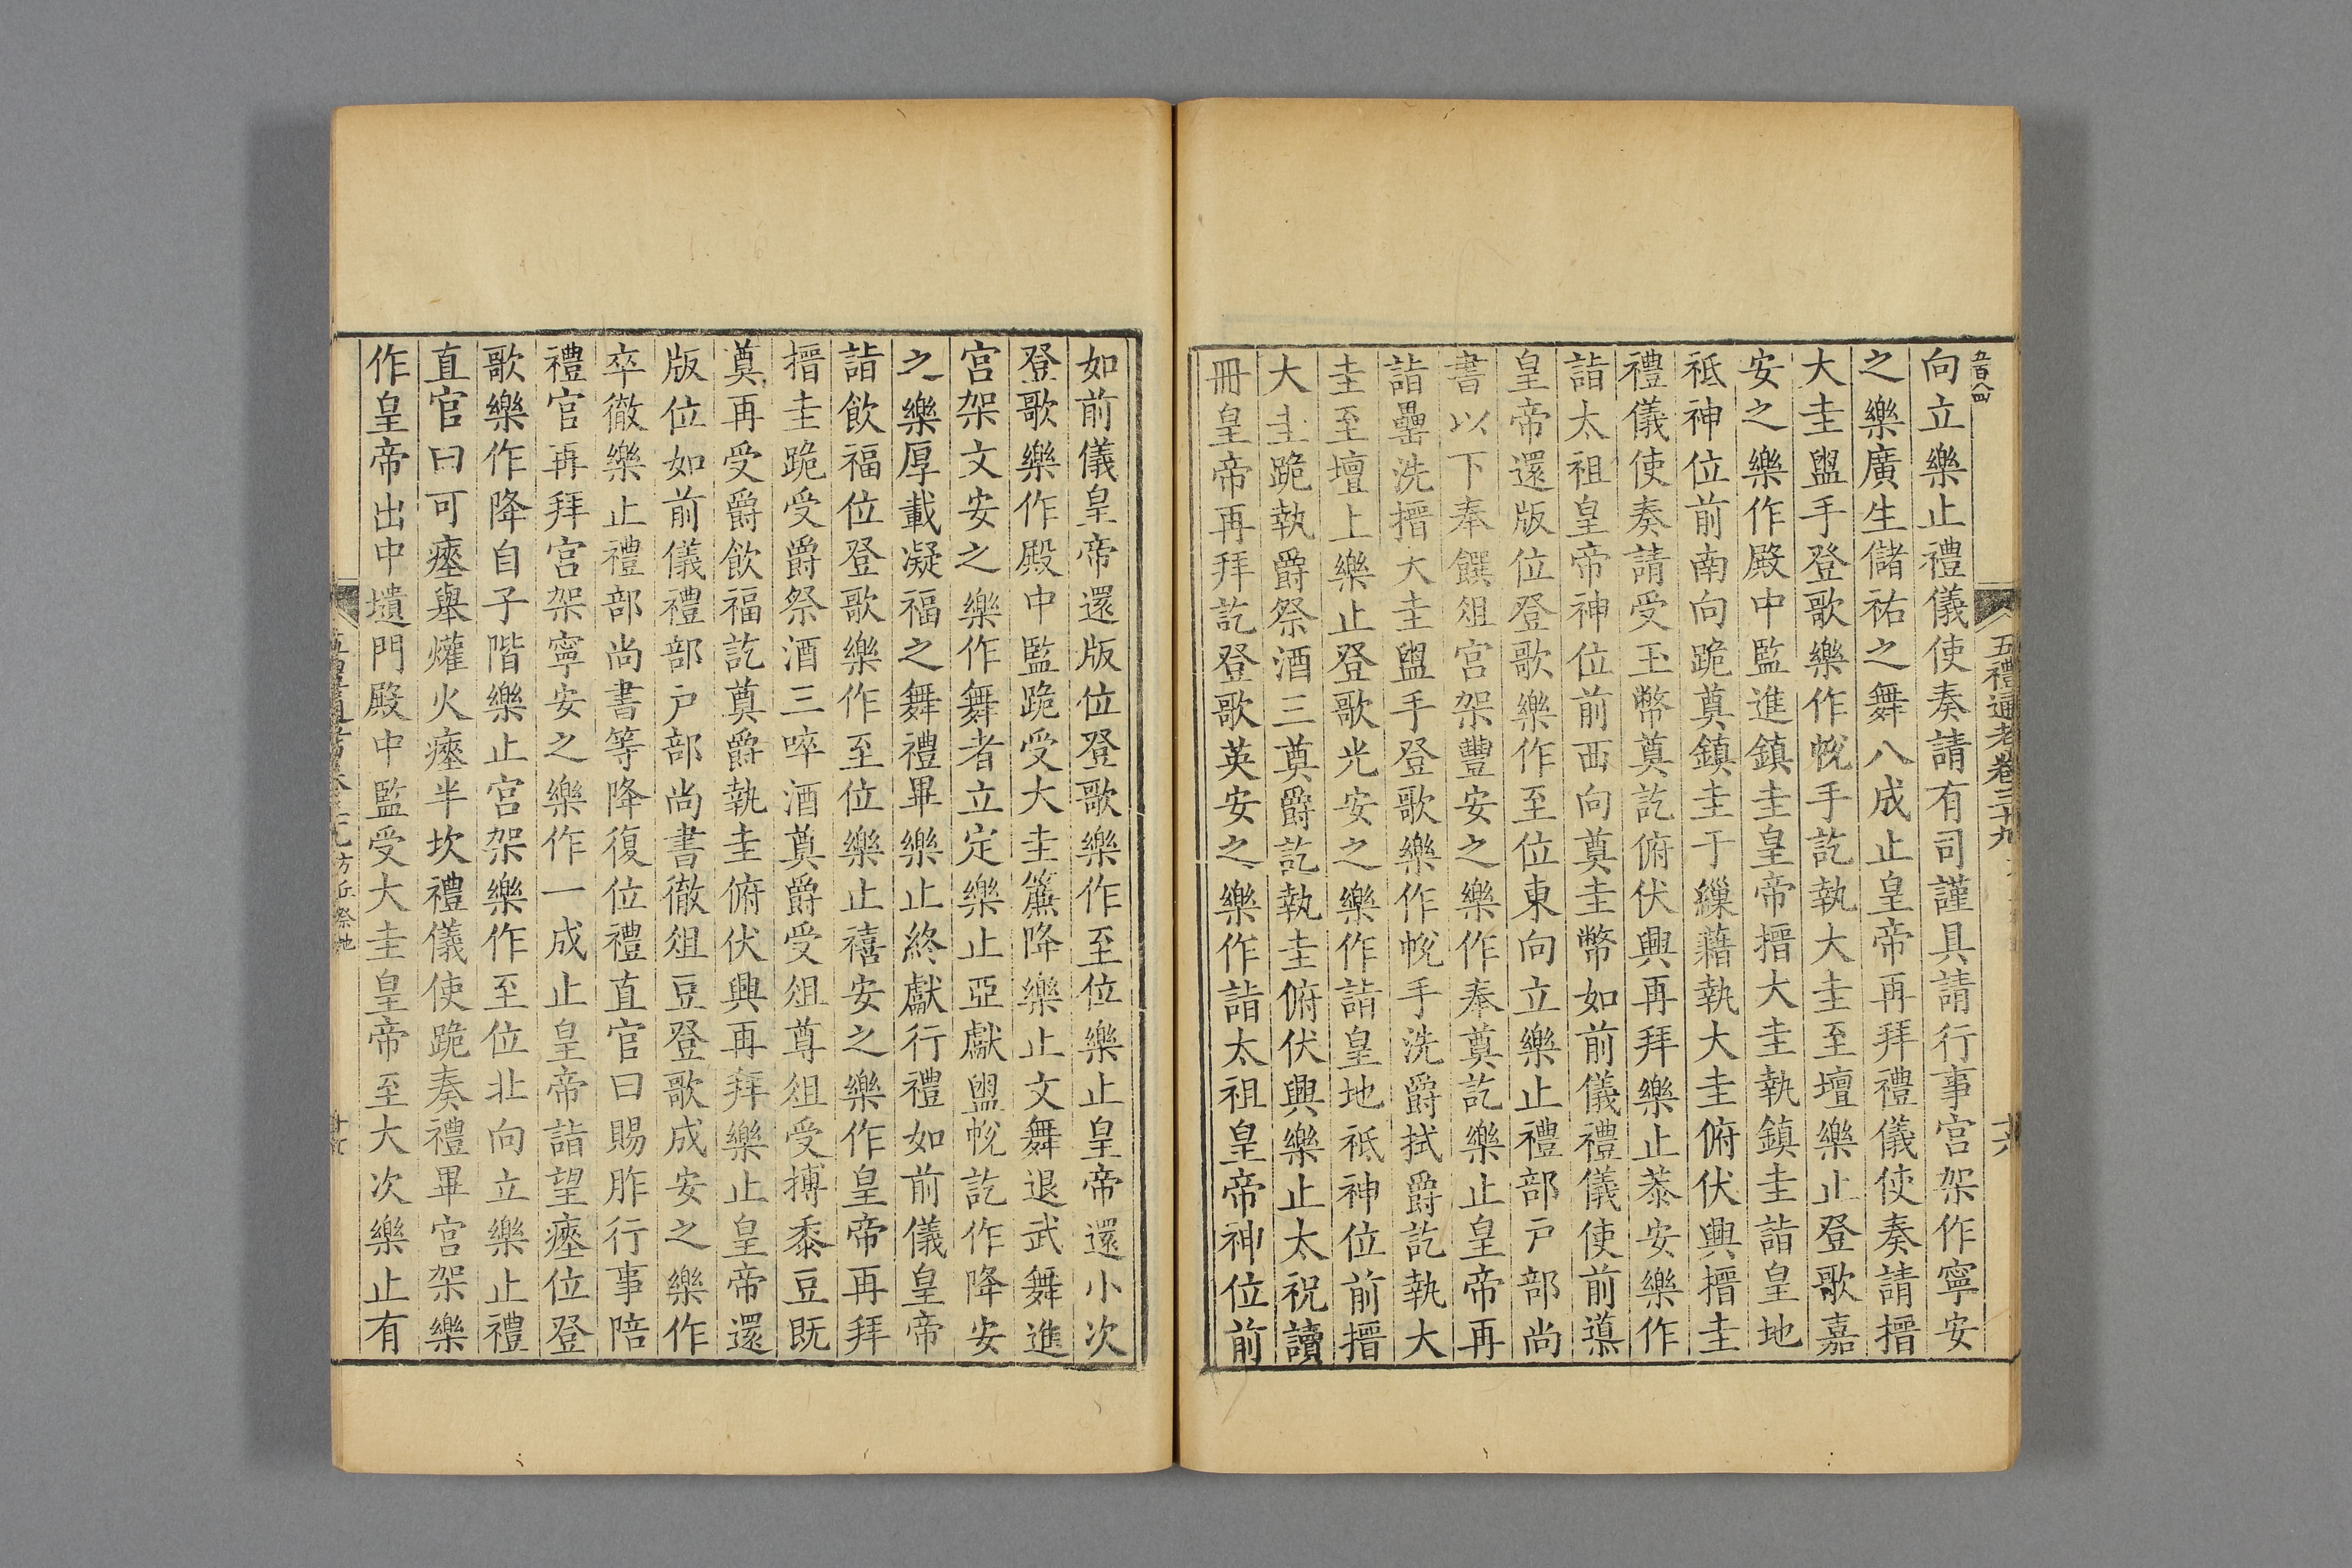 五百八四
五禮通考卷三十九
十六
向立樂止禮儀使奏請有司謹具請行事宮架作寧安
之樂廣生儲祐之舞八成止皇帝再拜禮儀使奏請搢
大圭盥手登歌樂作帨手訖執大圭至壇樂止登歌嘉
安之樂作殿中監進鎮圭皇帝搢大圭執鎮圭詣皇地
祗神位前南向跪奠鎮圭于繅藉執大圭俯伏興搢圭
禮儀使奏請受玉幣奠訖俯伏興再拜樂止恭安樂作
詣太祖皇帝神位前西向奠圭幣如前儀禮儀使前導
皇帝還版位登歌樂作至位東向立樂止禮部戶部尚
書以下奉饌俎宮架豐安之樂作奉奠訖樂止皇帝再
詣罍洗搢大圭盥手登歌樂作帨手洗爵拭爵訖執大
圭至壇上樂止登歌光安之樂作詣皇地祗神位前搢
大圭跪執爵祭酒三奠爵訖執圭俯伏興樂止太祝讀
冊皇帝再拜訖登歌英安之樂作詣太祖皇帝神位前
如前儀皇帝還版位登歌樂作至位樂止皇帝還小次
登歌樂作殿中監跪受大圭簾降樂止文舞退武舞進
宮架文安之樂作舞者立定樂止亞獻盥帨訖作降安
之樂厚載凝福之舞禮畢樂止終獻行禮如前儀皇帝
詣飲福位登歌樂作至位樂止禧安之樂作皇帝再拜
搢圭跪受爵祭酒三啐酒奠爵受俎尊俎受摶黍豆既
奠再受爵飲福訖奠爵執圭俯伏興再拜樂止皇帝還
版位如前儀禮部戶部尚書徹俎豆登歌成安之樂作
卒徹樂止禮部尚書等降復位禮直官曰賜胙行事陪
禮官再拜宮架寧安之樂作一成止皇帝詣望瘞位登
歌樂作降自子階樂止宮架樂作至位北向立樂止禮
直官曰可瘞舉爟火瘞半坎禮儀使跪奏禮畢宮架樂
作皇帝出中壝門殿中監受大圭皇帝至大次樂止有
方丘祭地